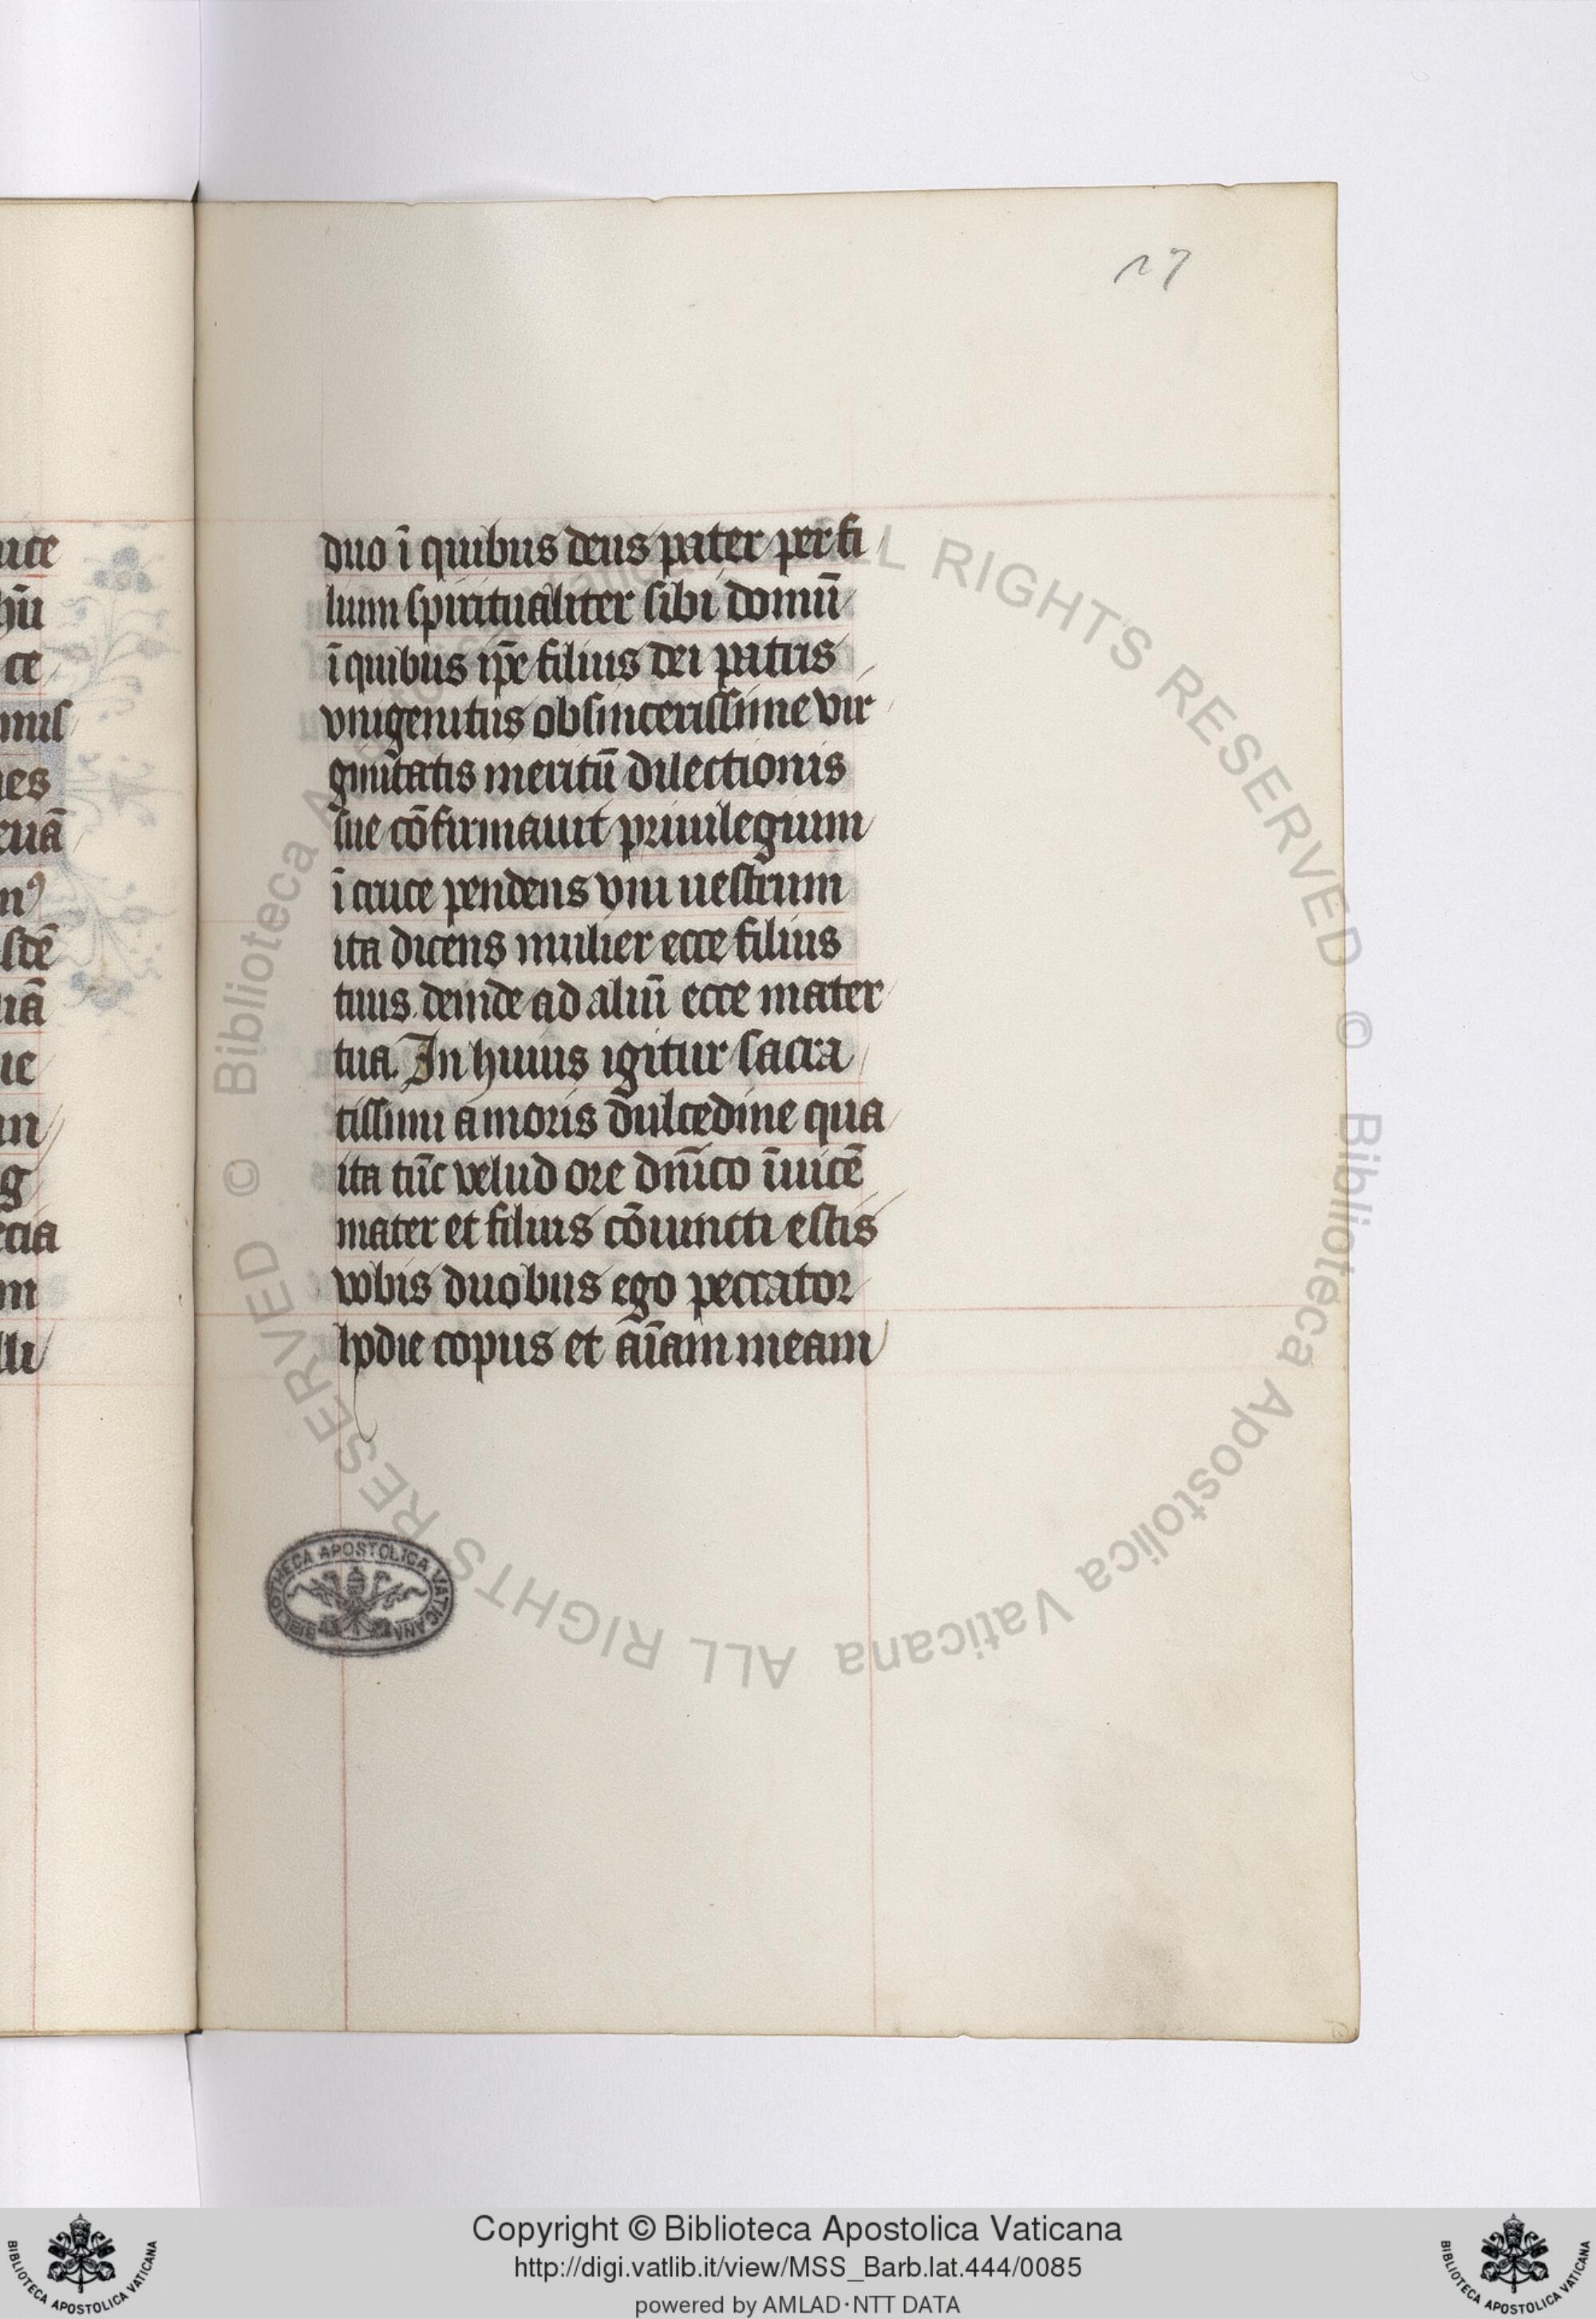 uce
hū
ce
mis
nes
euā
nꝰ
stē
uā
ue
in
g
cia
m
lli
27
duo ī quibus deus pater per fi
lium spiritualiter sibi domū
ī quibus ip̄e filius dei patris
vnigenitus ob sincerissime vir
ginitatis meritū dilectionis
sue cōfirmauit priuilegium
ī cruce pendens vni uestrum
ita dicens mulier ecce filius
tuus. deinde ad aliū ecce mater
tua. In huius igitur sacra
tissimi amoris dulcedine qua
ita tūc velud ore dn̄ico īuicē
mater et filius cōiuncti estis
vobis duobus ego peccator
hodie copus et aīam meam
BIBLIOTHECA APOSTOLICA VATICANA
© Biblioteca Apostolica Vaticana ALL RIGHTS RESERVED © Biblioteca Apostolica Vaticana ALL RIGHTS RESERVED
Copyright © Biblioteca Apostolica Vaticana
http://digi.vatlib.it/view/MSS_Barb.lat.444/0085
powered by AMLAD·NTT DATA
BIBLIOTECA APOSTOLICA VATICANA
BIBLIOTECA APOSTOLICA VATICANA